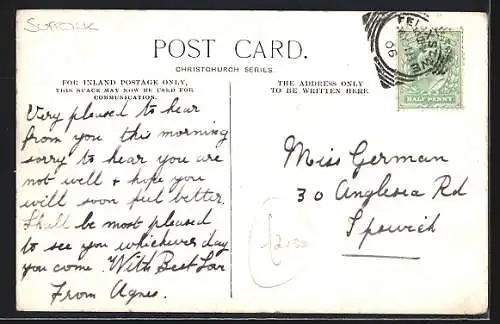 SUFFOLK
POST CARD.
CHRISTCHURCH SERIES.
FOR INLAND POSTAGE ONLY,
THIS SPACE MAY NOW BE USED FOR
COMMUNICATION.
THE ADDRESS ONLY
TO BE WRITTEN HERE
HALF PENNY
06
Very pleased to hear
from you this morning
sorry to hear you are
not well & hope you
will soon feel better.
Shall be most pleased
to see you whichever day
you come. With Best Love
From Agnes.
Miss German
30 Anglesea Rd
Ipswich